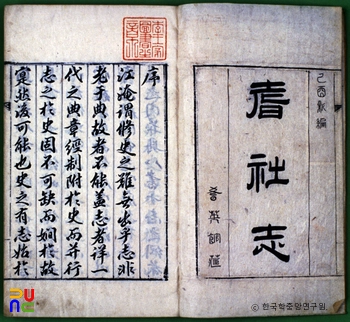 己酉新編
耆社志
耆英館藏
序
江淹謂修史之難無出乎志非
老于典故者不能盖志者詳一
代之典章經制附於史而並行
志之於史固不可缺而嫺於故
寔然後可能也史之有志始於
© 한국학중앙연구원